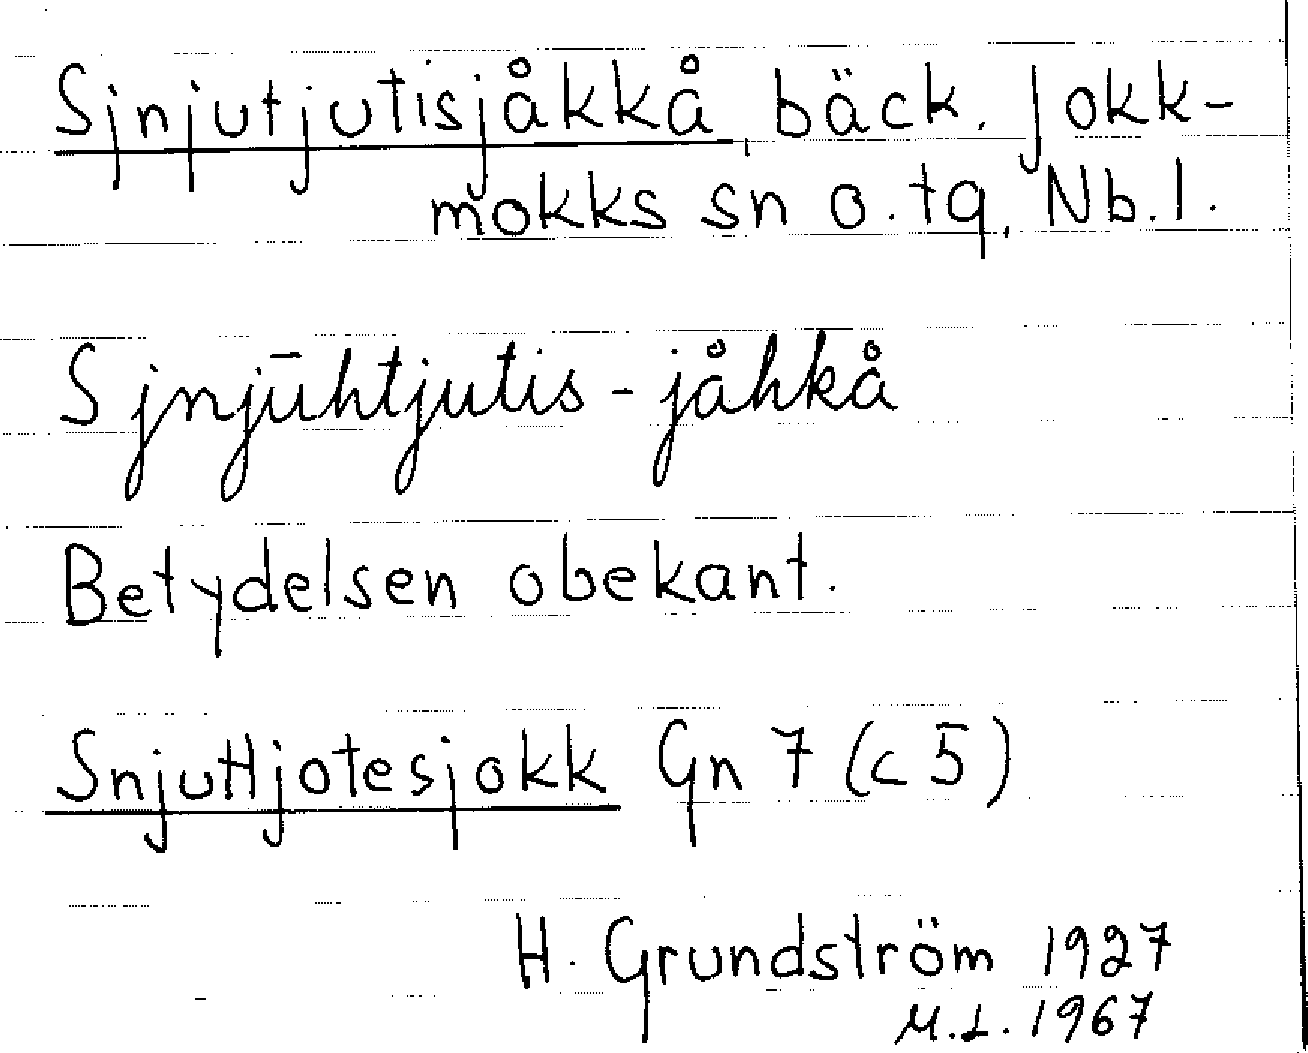 Sjnjutjutisjåkkå, bäck. Jokk-
mokks sn o. tg, Nb.l.
Sjnjūhtjutis-jåhkå
Betydelsen obekant.
Snjuttjotesjokk Gn 7 (c 5)
H. Grundström 1927
M.L. 1967